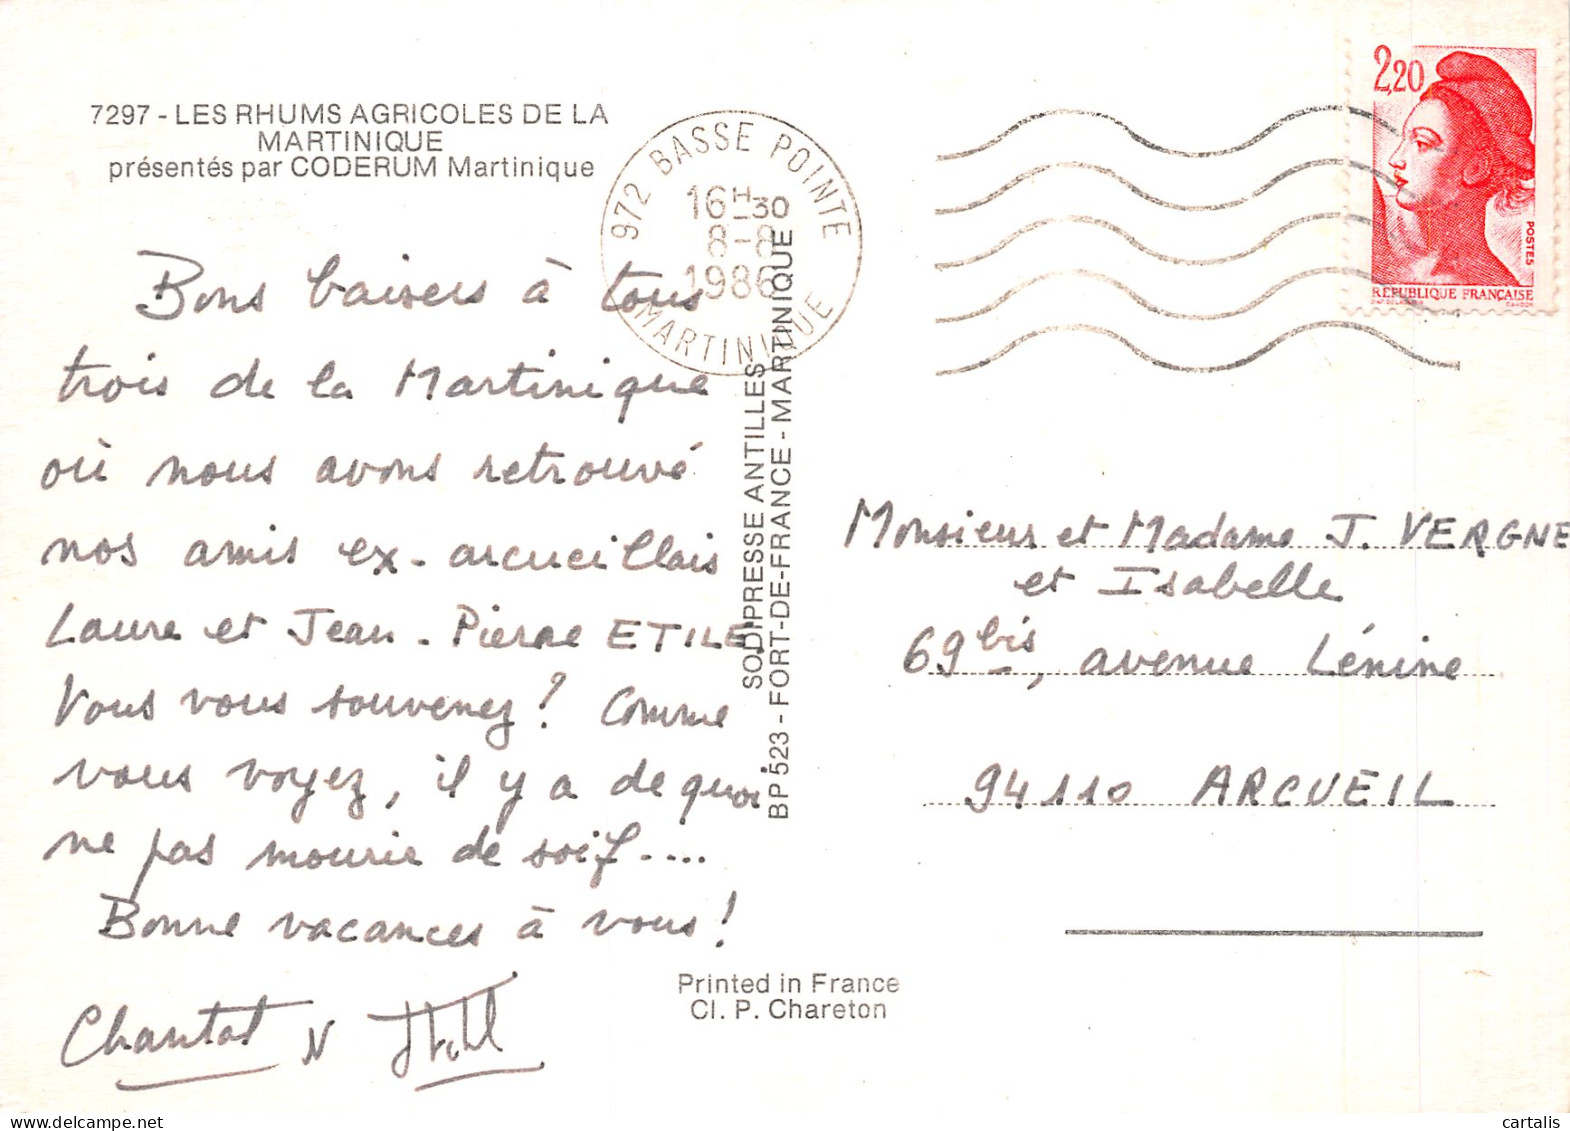 7297 - LES RHUMS AGRICOLES DE LA
MARTINIQUE
présentés par CODERUM Martinique
Bons baisers à tous
trois de la Martinique
où nous avons retrouvé
nos amis ex-arcueillais
Laure et Jean-Pierre ETILE
Vous vous souvenez ? Comme
vous voyez, il y a de quoi
ne pas mourir de soif....
Bonne vacances à vous !
Chantal N
972 BASSE POINTE
16H-30
8-8
1986
MARTINIQUE
SODIPRESSE ANTILLES
BP 523 - FORT-DE-FRANCE - MARTINIQUE
2,20
POSTES
RÉPUBLIQUE FRANÇAISE
Monsieur et Madame J. VERGNE
et Isabelle
69 bis, avenue Lénine
94110 ARCUEIL
Printed in France
Cl. P. Chareton
cartalis